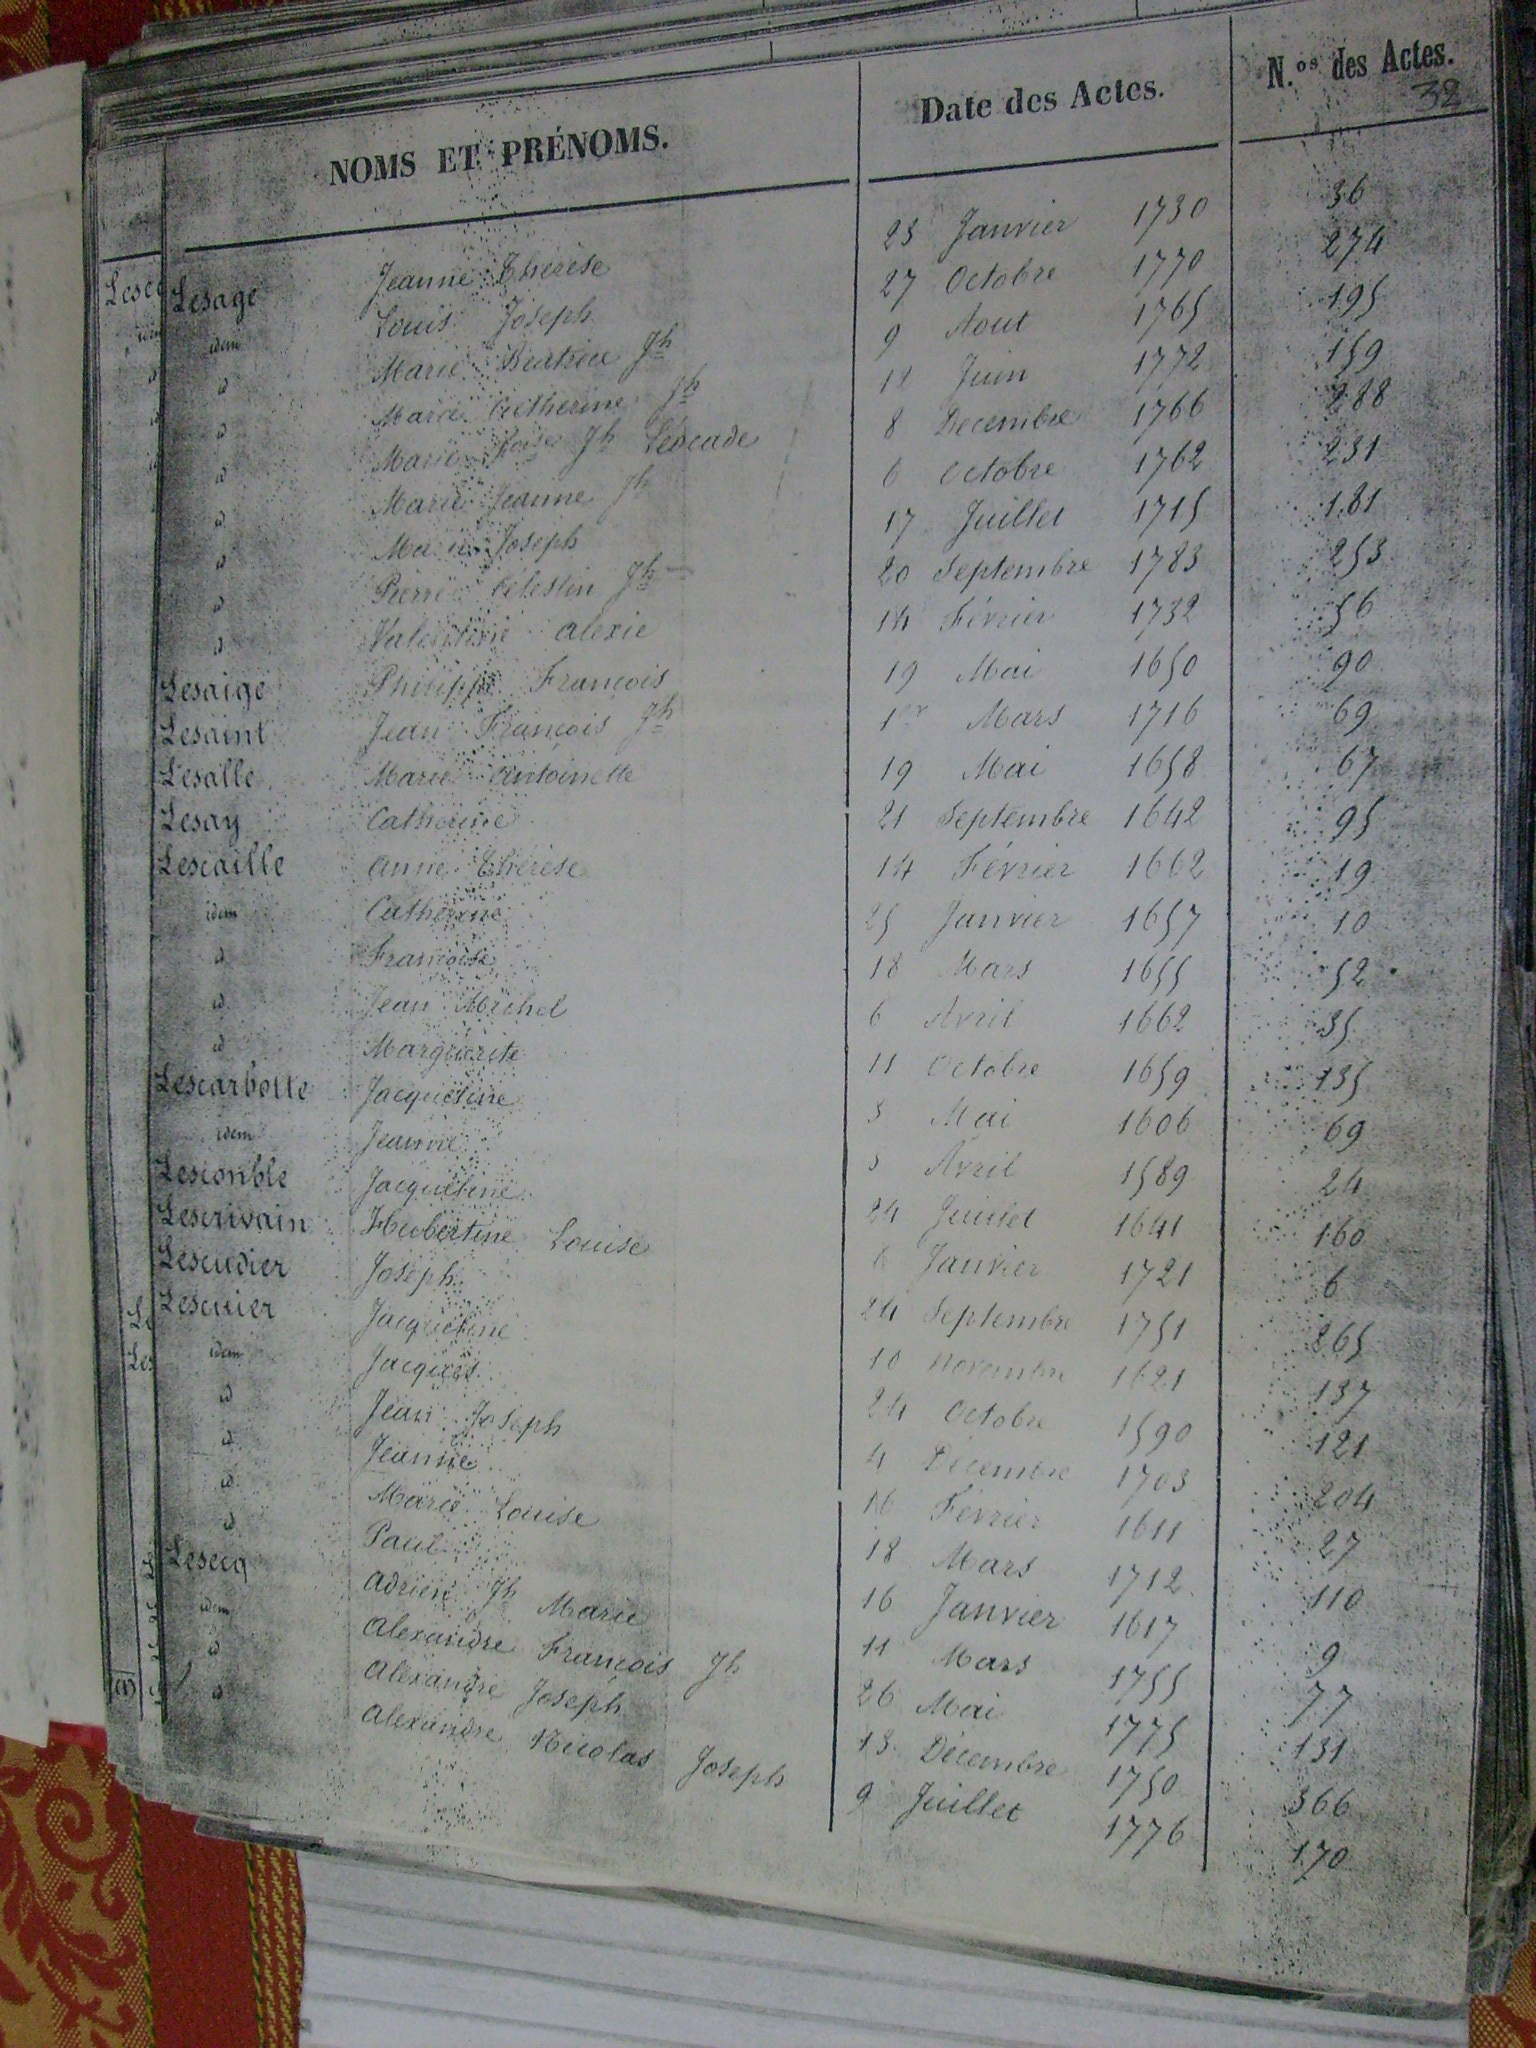 NOMS ET PRÉNOMS. Date des Actes. N.os des Actes.
32
Lesage Jeanne Thérèse 23 Janvier 1730 36
idem Louis Joseph 27 Octobre 1770 274
id Marie Béatrice Jh 9 Aout 1765 195
id Marie Catherine Jh 11 Juin 1772 159
id Marie Jh Léocade 8 Decembre 1766 288
id Marie Jeanne Jh 6 Octobre 1762 231
id Marie Joseph 17 Juillet 1715 181
id Pierre Célestin Jh 20 Septembre 1783 253
id Valentine Alexie 14 Février 1732 56
Lesaige Philippe François 19 Mai 1650 90
Lesaint Jean François Jh 1er Mars 1716 69
Lesalle Marie Antoinette 19 Mai 1658 67
Lesay Catherine 21 Septembre 1642 95
Lescaille Anne Thérèse 14 Février 1662 19
idem Catherine 25 Janvier 1657 10
id Françoise 18 Mars 1655 52
id Jean Michel 6 Avril 1662 35
id Marguerite 11 Octobre 1659 135
Lescarbotte Jacqueline 3 Mai 1606 69
idem Jeanne Avril 1589 24
Lesconble Jacqueline 24 Juillet 1641 160
Lescrivain Hubertine Louise 6 Janvier 1721 6
Lescudier Joseph 24 Septembre 1751 265
Lescuier Jacqueline 10 Novembre 1621 137
idem Jacques 24 Octobre 1590 121
id Jean Joseph 4 Decembre 1703 204
id Jeanne 16 Février 1611 27
id Marie Louise 18 Mars 1712 110
id Paul 16 Janvier 1617 9
Lesecq Adrien Jh Marie 11 Mars 1755 77
idem Alexandre François Jh 26 Mai 1775 131
id Alexandre Joseph 13 Décembre 1750 366
id Alexandre Nicolas Joseph 9 Juillet 1776 170